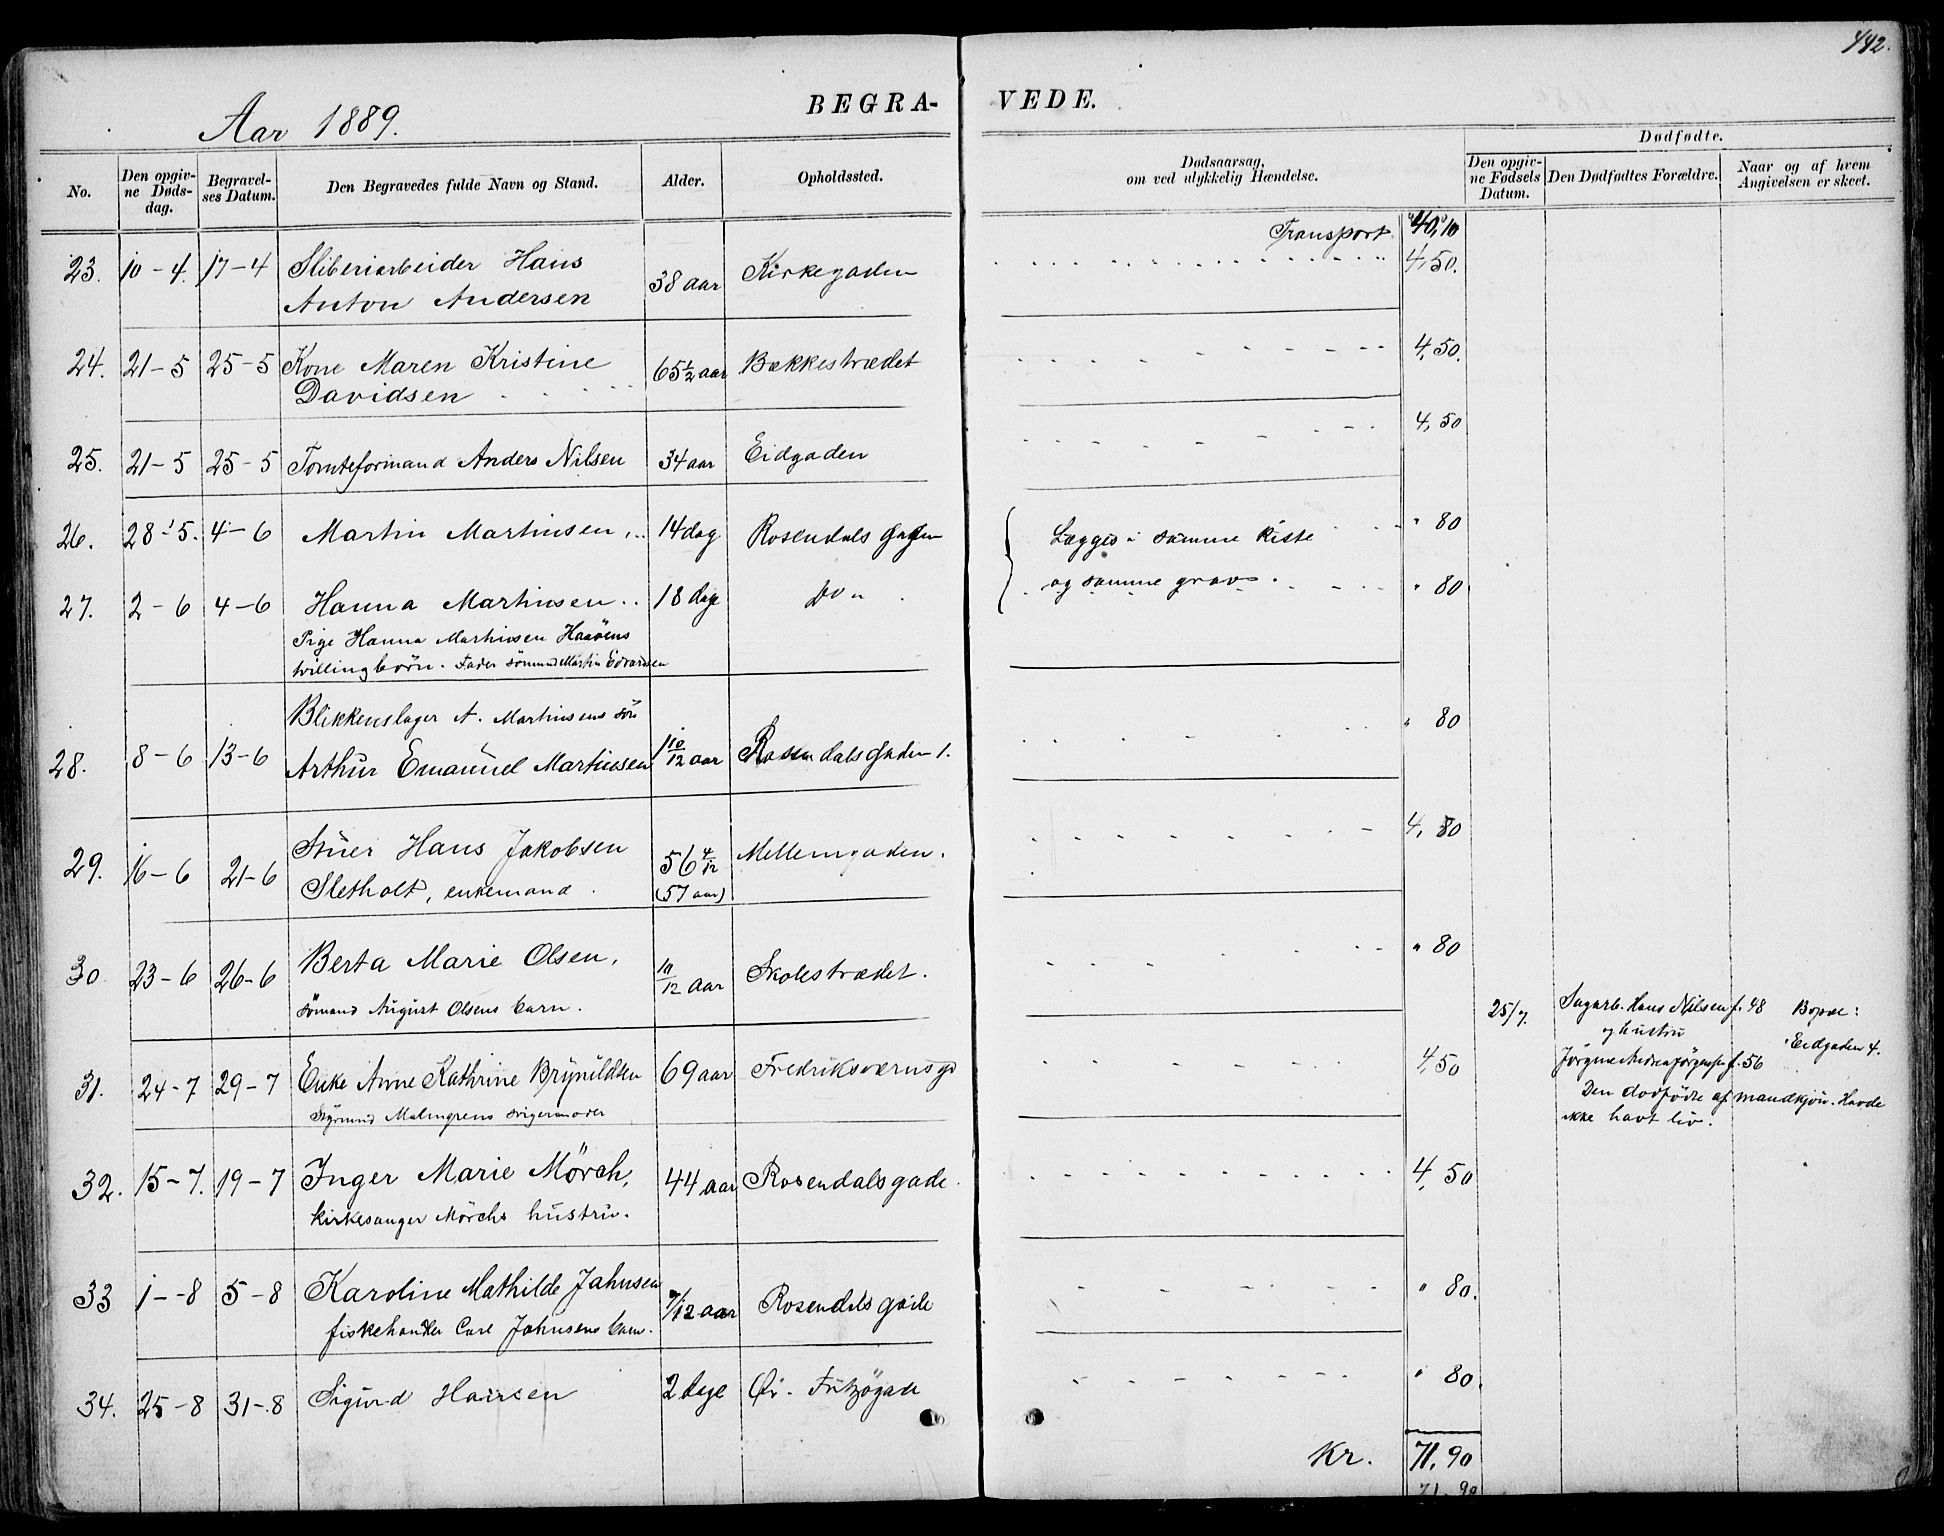 442.
Aar 1889.
BEGRA- VEDE.
No.
Den opgiv-
ne Døds-
dag.
Begravel-
ses Datum.
Den Begravedes fulde Navn og Stand.
Alder.
Opholdssted.
Dødsaarsag,
om ved ulykkelig Hændelse.
Dødfødte.
Den opgiv-
ne Fødsels
Datum.
Den Dødfødtes Forældre.
Naar og af hvem
Angivelsen er skeet.
Transport 40,10
23. 10-4. 17-4 Sliberiarbeider Hans 38 aar Kirkegaden 4,50.
Anton Andersen
24. 21-5 25-5 Kone Maren Kristine 65 1/2 aar Bækkestrædet 4,50.
Davidsen
25. 21-5 25-5 Tomteformand Anders Nilsen 34 aar Eidgaden 4,50
26. 28-5. 4-6 Martin Martinsen 14 dag Rosendals gaden Lægges i samme kiste " 80
27. 2-6 4-6 Hanna Martinsen 18 dage Do " og samme grav. " 80
Pige Hanna Martinsen Haaöens
tvillingbörn. Fader sömand Martin Edvardsen
Blikkenslager A. Martinsens sön
28. 8-6 13-6 Arthur Emanuel Martinsen 1 10/12 aar Rosendalsgaden 1. " 80
29. 16-6 21-6 Stuer Hans Jakobsen 56 4/12 Mellemgaden. 4,80
Sletholt, enkemand. (57 aar)
30 23-6 26-6 Berta Marie Olsen, 10/12 aar Skolestrædet. " 80
sömand August Olsens barn.
25/7. Sagarb. Hans Nilsen f. 48 Bopæl:
og hustru Eidgaden 4.
Jörgine Andrea Jörgensen f. 56
Den dodfödte af mandkjön. Havde
ikke havt liv.
31. 24-7 29-7 Enke Anne Kathrine Brynildsen 69 aar Fredriksværnsgd 4,50
Styrmand Malmgrens svigermoder
32. 15-7. 19-7 Inger Marie Mörch, 44 aar Rosendalsgade. 4,50
kirkesanger Mörchs hustru.
33 1-8 5-8 Karoline Mathilde Jahnsen 7/12 aar Rosendalsgade " 80.
fiskehandler Carl Jahnsens barn.
34. 25-8 31-8 Sigurd Hansen 2 dage Öv. Fritzögade " 80.
Kr. 71,90
71,90